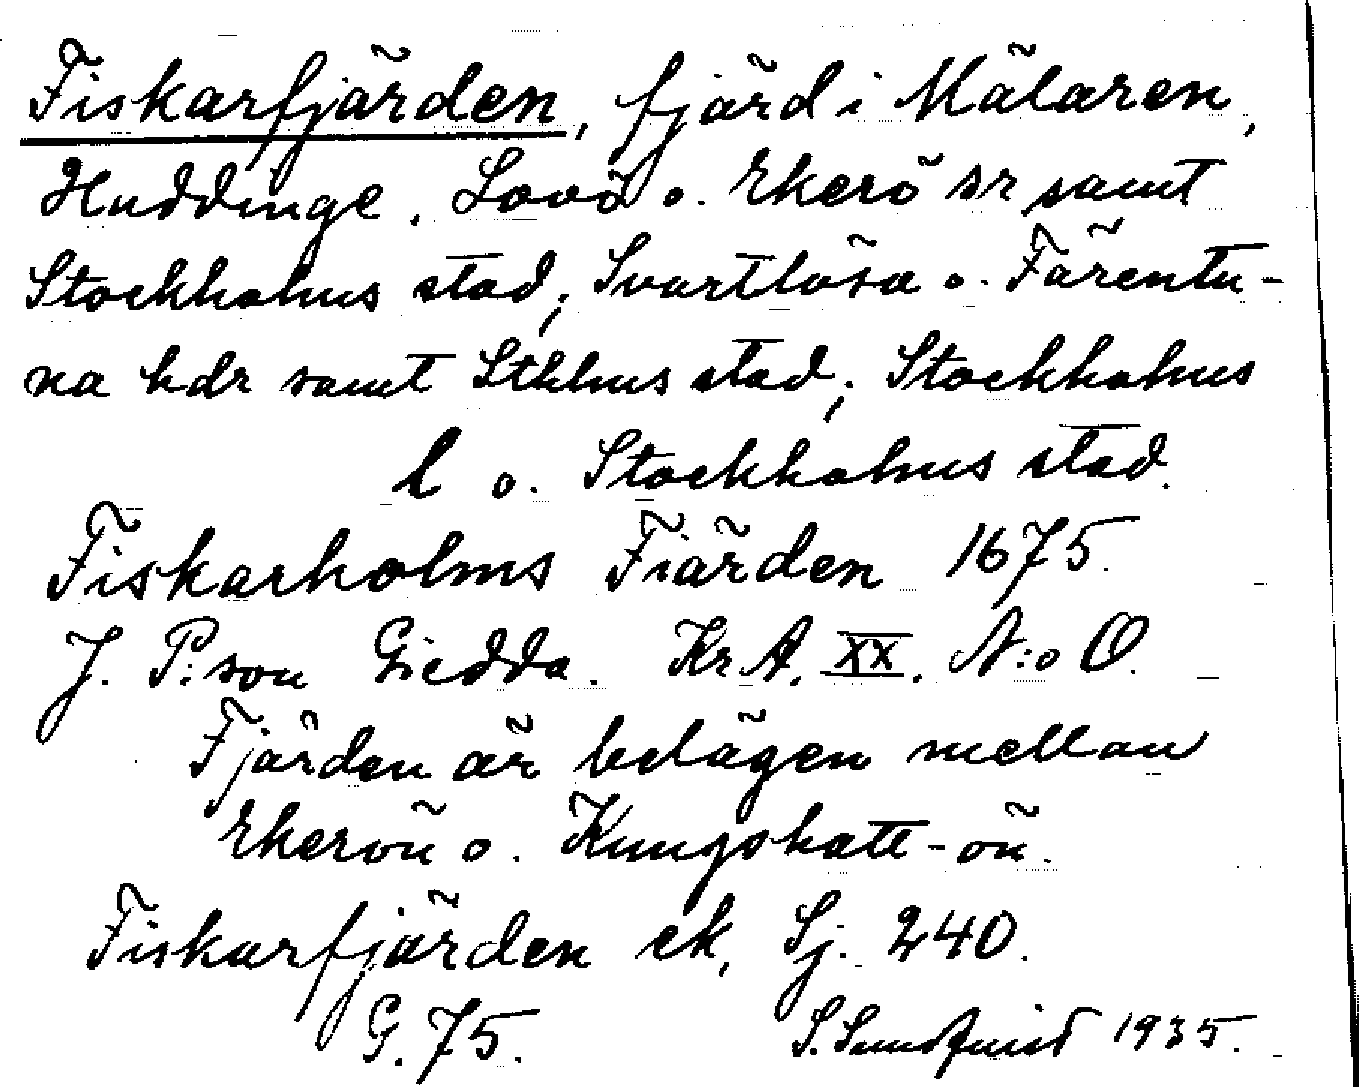 Fiskarfjärden, fjärd i Mälaren,
Huddinge, Lovö o. Ekerö sr samt
Stockholms stad; Svartlösa o. Färentu-
na hdr samt Sthlms stad; Stockholms
l o. Stockholms stad.
Fiskarholms Fiärden 1675.
J. P:son Giedda. KrA. XX. N:o O.
Fjärden är belägen mellan
Ekerön o. Kungshatt-ön.
Fiskarfjärden ek, Sj. 240.
G. 75. S. Sundquist 1935.